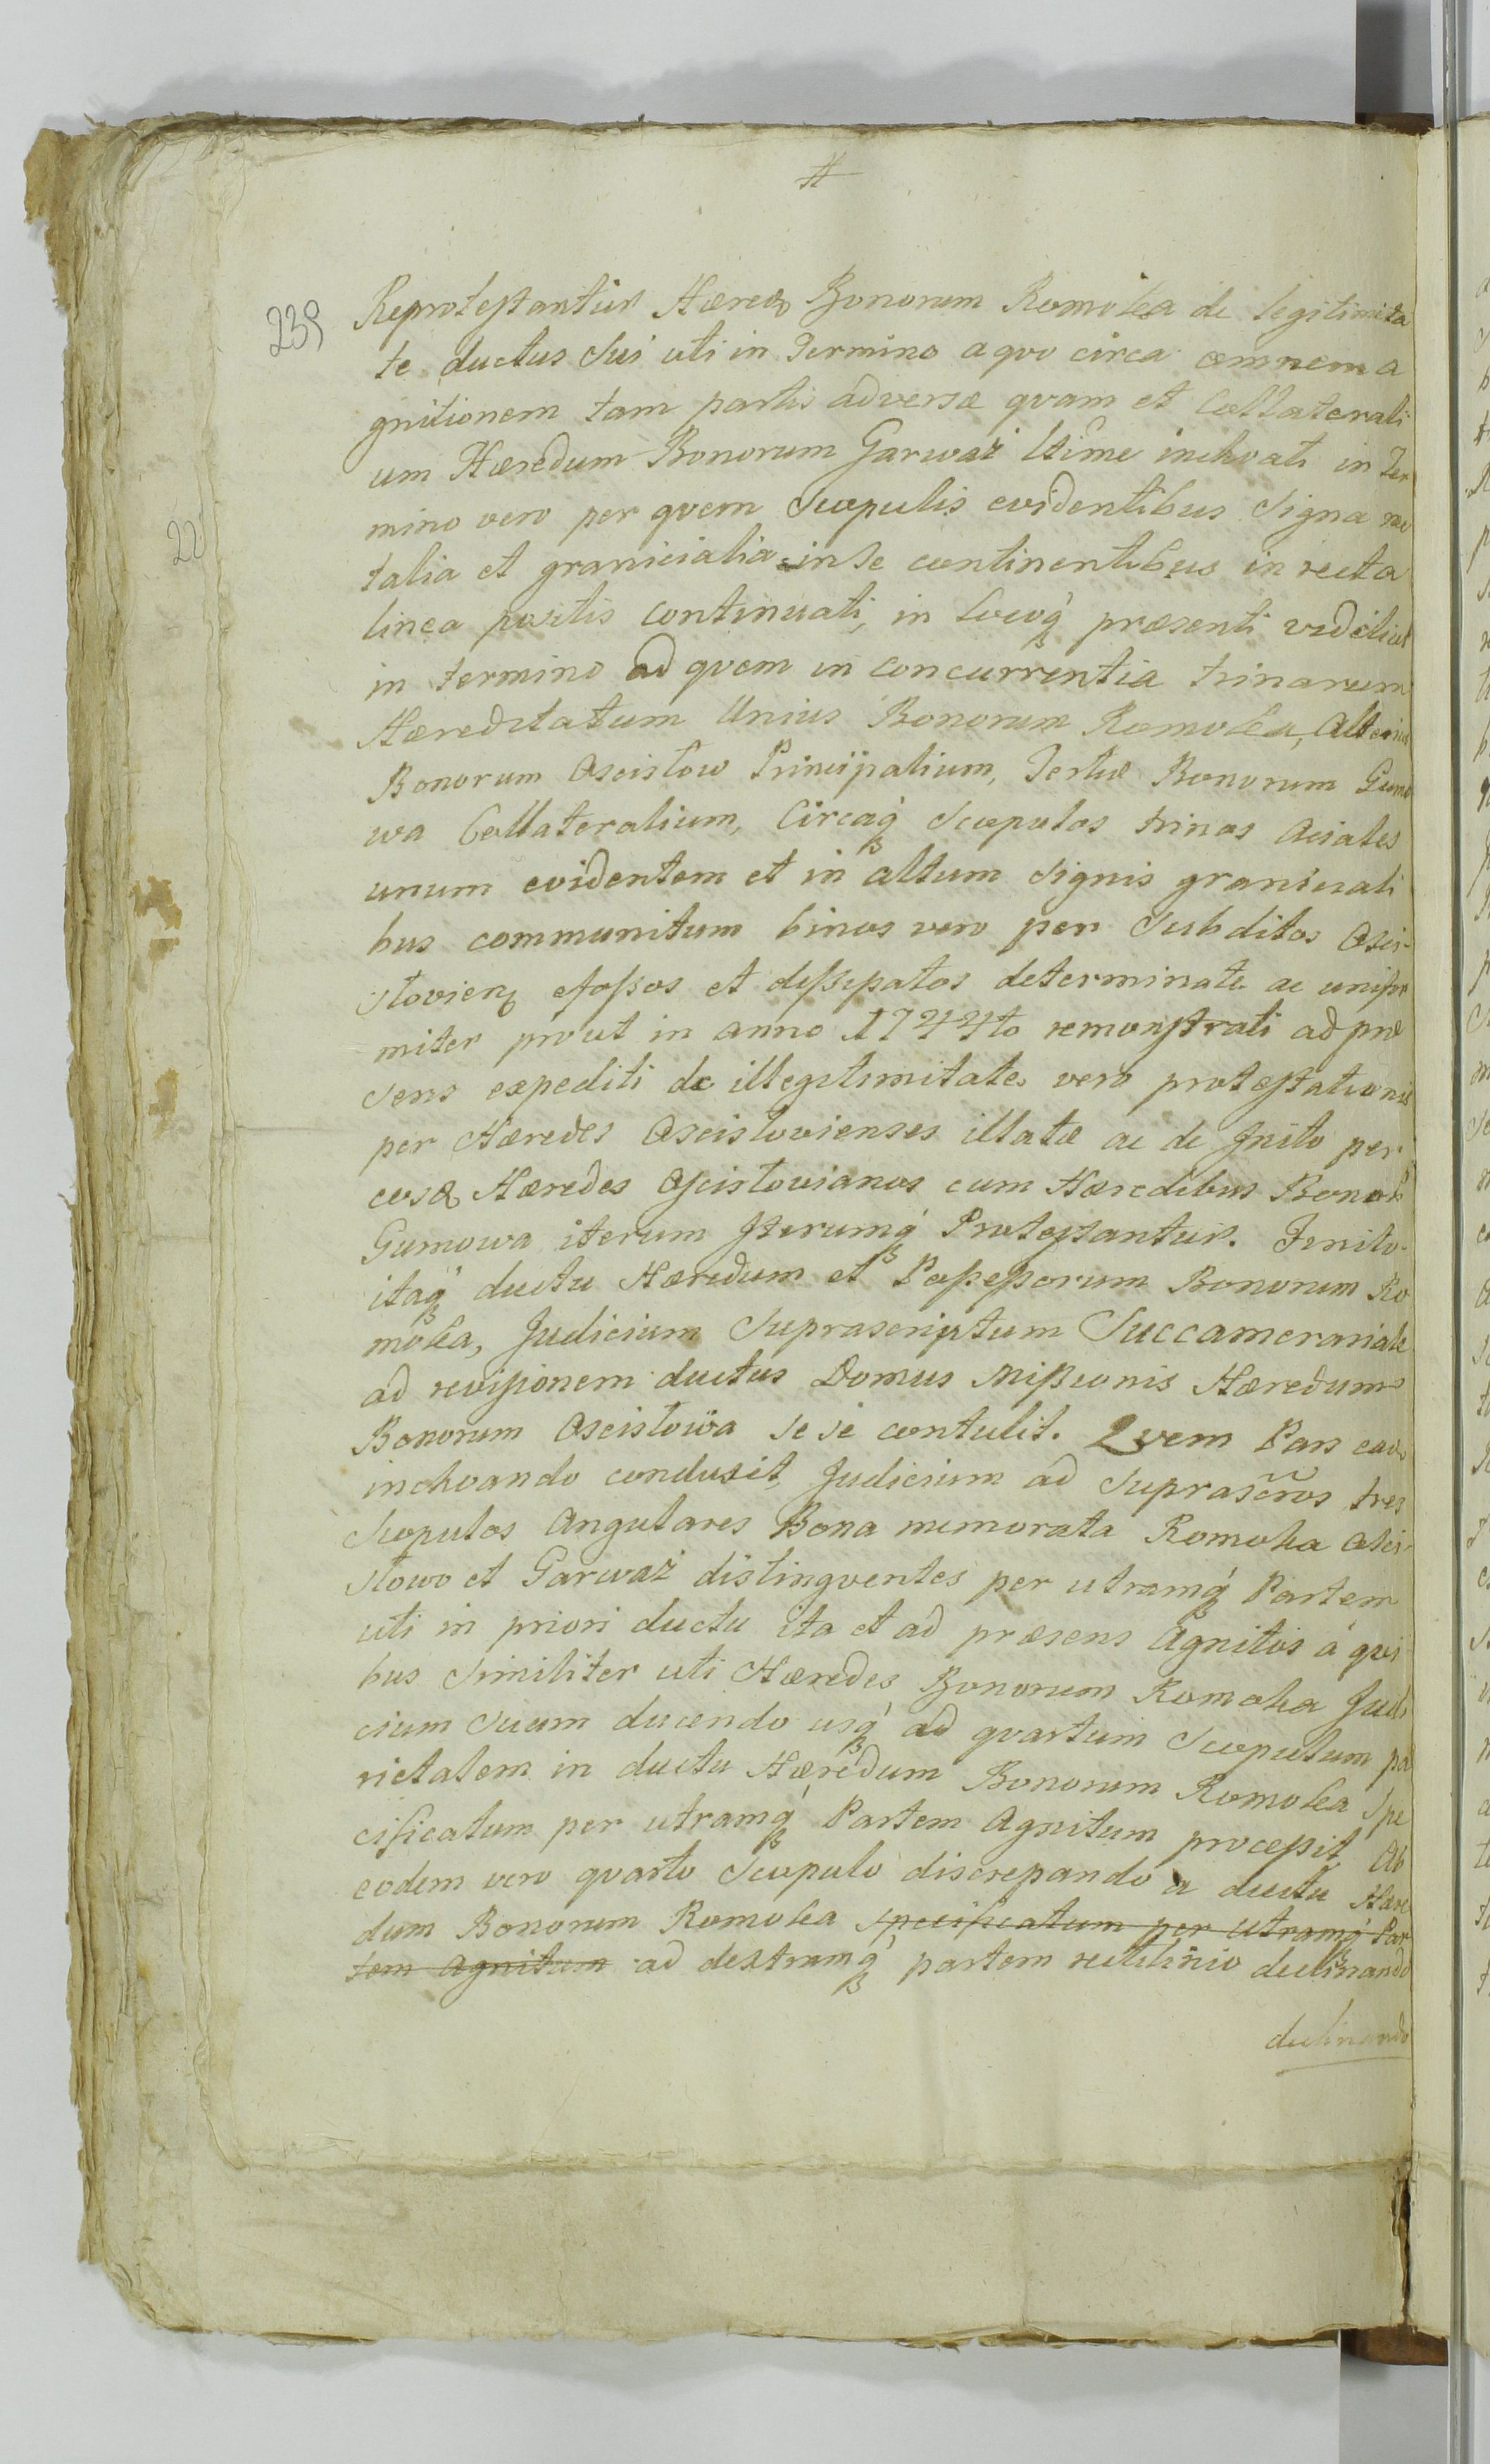 #
239
Reprotestantur Hæredes Bonorum Romoka de legitimita
te ductus Sui uti in Termino a quo circa omnem a
gnitionem tam partis adversæ qvam et Collaterali
um Hæredum Bonorum Garważ ltime inchoati in Ter
mino vero per qvem Scopulis evidentibus Signa me
22
talia et granicialia in Se continentibus in recta
linea positis continuati, in locoq́ præsenti videlicet
in termino ad qvem in concurrentia trinarum
Hæreditatum Unius Bonorum Romoka, Alterius
Bonorum Oscisłow Principalium, Tertiæ Bonorum Gumo
wa Collateralium, Circaq́ Scopulos trinos Aciales
unum evidentem et in altum Signis graniciali
bus communitum binos vero per Subditos Osci-
słovien effossos et dissipatos determinate ac unifor
miter prout in anno 1744to remonstrati ad præ
sens expediti de illegitimitate vero protestationis
per Hæredes Oscislovienses illatæ ac de Inito per
eosd Hæredes Oscislovianos cum Hæredibus Bonor
Gumowa iterum Iterumq́ Protestantur. Finito
itaq́ ductu Hæredum et Possessorum Bonorum Ro
moka, Judicium Suprascriptum Succamerariale
ad revisionem ductus Domus Missionis Hæredum
Bonorum Oscisłowa Se se contulit. Qvem Pars eadem
inchoando conduxit, Judicium ad Suprascros tres
Scopulos Angulares Bona memorata Romoka Osci-
słowo et Garważ distingventes per utramq́ Partem
uti in priori ductu ita et ad præsens Agnitos á qui
bus Similiter uti Hæredes Bonorum Romoka Judi
cium Suum ducendo usq́ ad qvartum Scopulum pa
rietalem in ductu Hæredum Bonorum Romoka Spe
cificatum per utramq́ Partem Agnitum processit, Ab
eodem vero qvarto Scopulo discrepando a ductu Hære
dum Bonorum Romoka specificatum per utramq́ Par
tem Agnitum ad dextramq́ partem rectilinio declinando
declinando